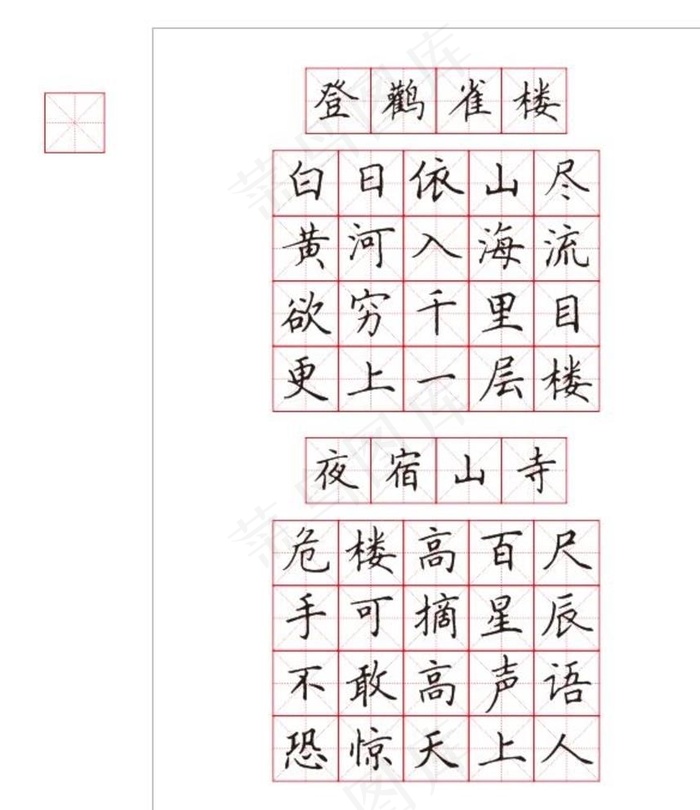 登鹳雀楼
白日依山尽
黄河入海流
欲穷千里目
更上一层楼
夜宿山寺
危楼高百尺
手可摘星辰
不敢高声语
恐惊天上人